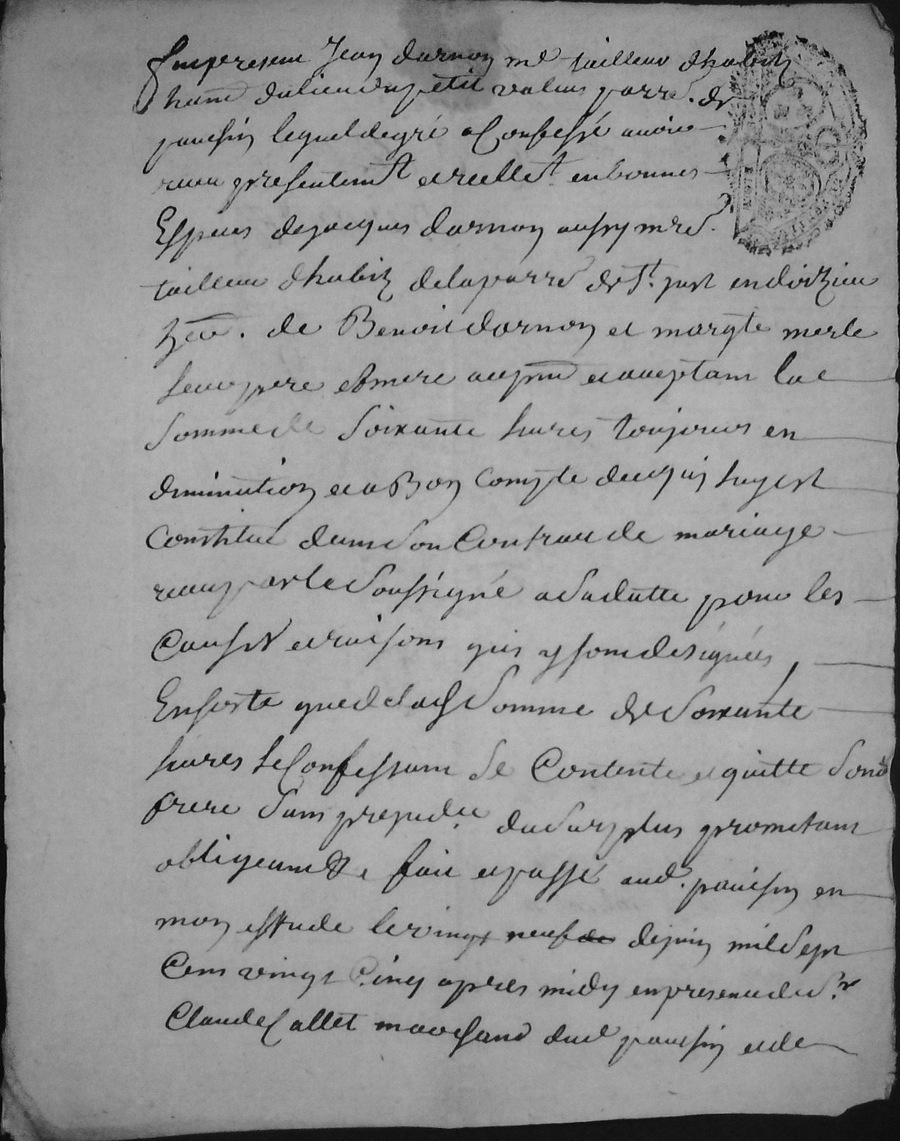 fut present Jean darnon me tailleur dhabitz
habt du lieu du petit valus parre. de
pansin lequel de gré a Confessé avoir
reçu presentemt et réellet en bonnes
Especes de jacques darnon aussy mre
tailleur dhabitz de la parre de St. just en doizieu
de Benoit darnon et margte merle
leur pere et mere acceptant la
somme de soixante livres toujours en
diminution et a Bon Compte de ce qui luy est
Constitué dans son Contrat de mariage
receu par le soussigné a sa datte pour les
Causes et raisons qui y sont designées,
En sorte que de lad somme de soixante
livres le Confessant se Contente et quitte sond
frere sans prejudice du surplus prometant
obligeant &c fait et passé aud. pansin en
mon estude le vingt neuf de juin mil sept
Cent vingt Cinq apres midy en presence de Sr
Claude Callet marchand dud pansin et de